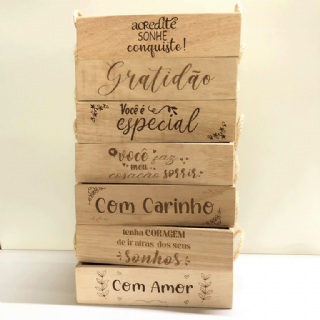 acredite
SONHE
conquiste!
Gratidão
Você é
especial
você faz
meu
coração sorrir
Com Carinho
tenha CORAGEM
de ir atras dos seus
sonhos
Com Amor